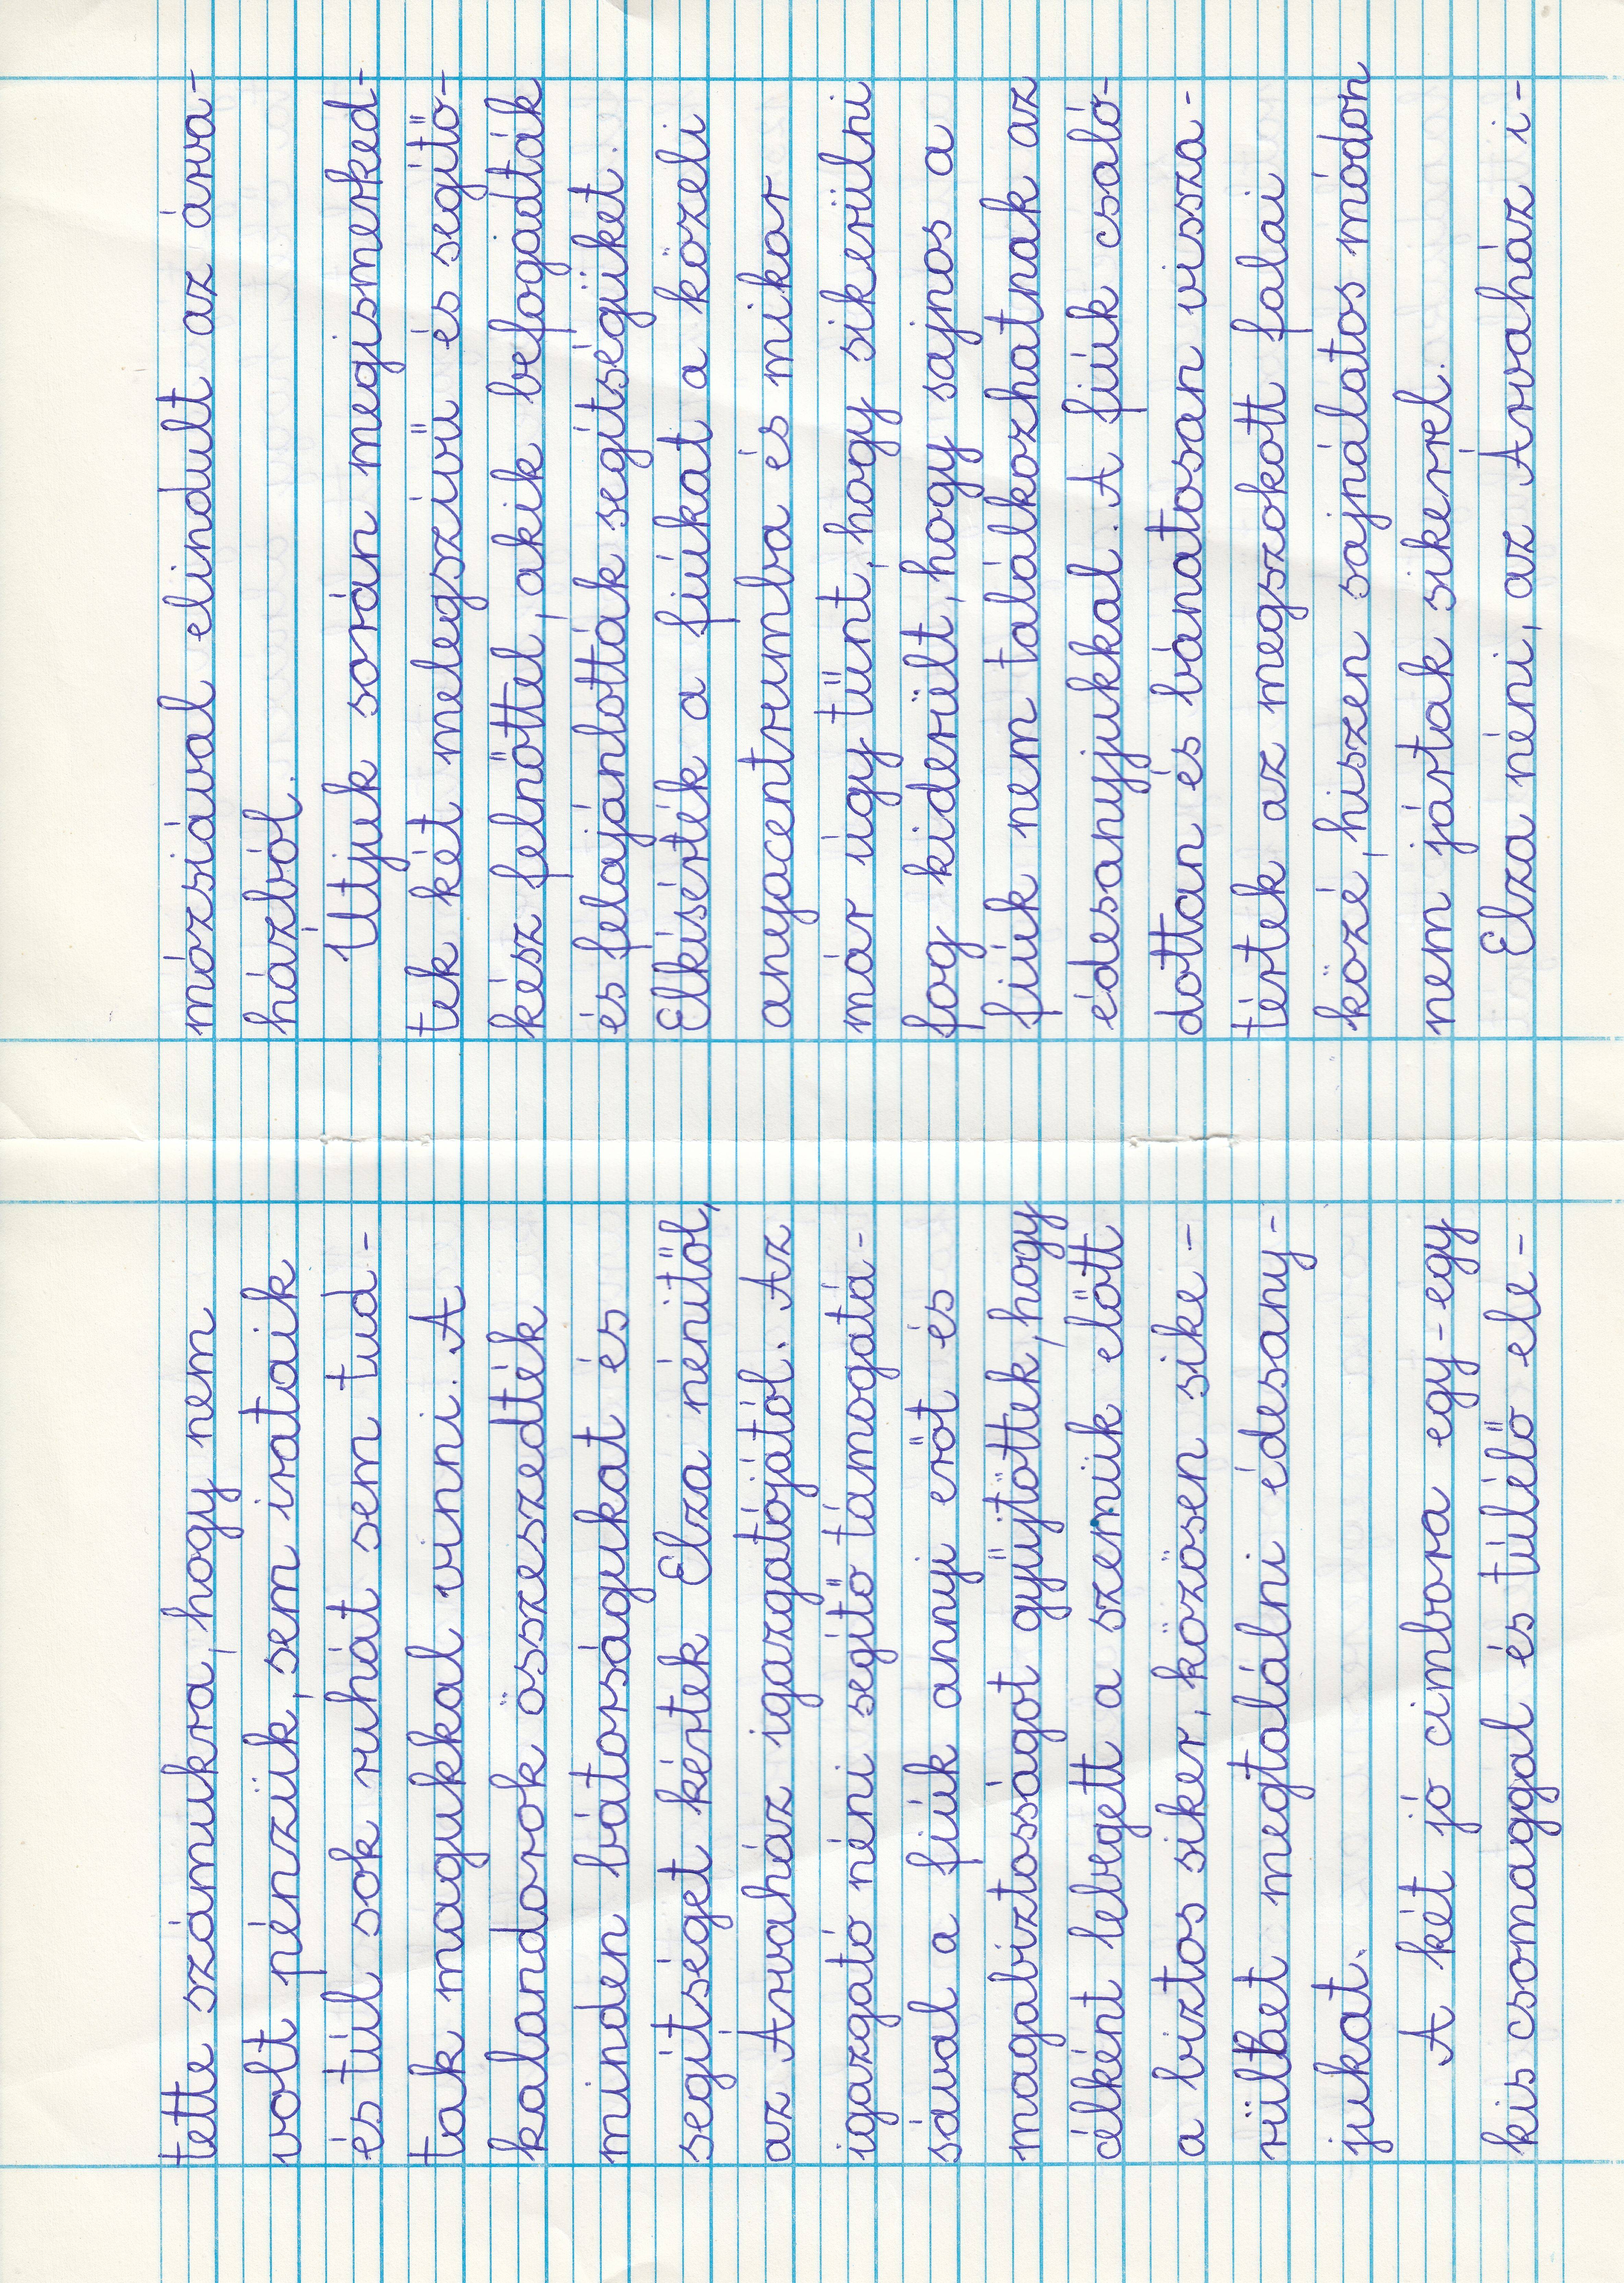 tette számukra, hogy nem
volt pénzük, sem irataik
és túl sok ruhát sem tud-
tak magukkal vinni. A
kalandorok összeszedték
minden bátorságukat és
segítséget kértek Elza nénitől,
az Árvaház igazgatójától. Az
igazgató néni segítő támogatá-
sával a fiúk annyi erőt és
magabiztosságot gyűjtöttek, hogy
célként lebegett a szemük előtt
a biztos siker, közösen sike-
rülhet megtalálni édesany-
jukat.
A két jó cimbora egy-egy
kis csomaggal és túlélő ele-
mózsiával elindult az árva-
házból.
Útjuk során megismerked-
tek két melegszívű és segítő-
kész felnőttel, akik befogadták
és felajánlották segítségüket.
Elkísérték a fiúkat a közeli
anyacentrumba és mikor
már úgy tűnt, hogy sikerülni
fog kiderült, hogy sajnos a
fiúk nem találkozhatnak az
édesanyjukkal. A fiúk csaló-
dottan és bánatosan vissza-
tértek az megszokott falai
közé, hiszen sajnálatos módon
nem jártak sikerrel.
Elza néni, az Árvaház i-